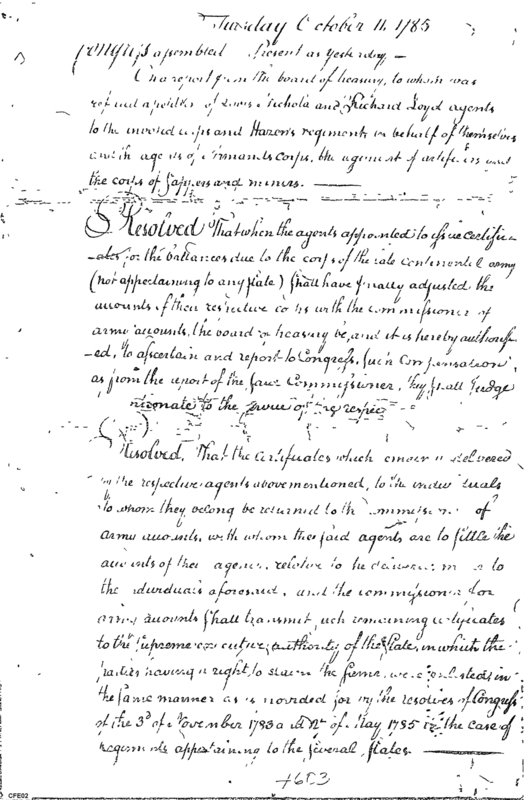 Tuesday October 11. 1785
Congress assembled Present as Yesterday, —
On a report from the board of treasury, to whom was
referred a petition of Lewis Nichola and Richard Loyd agents
to the invalid corps and Hazen's regiments in behalf of themselves
and the agents of Armands corps, the regiment of artificers and
the corps of Sappers and miners. —
Resolved That when the agents appointed to issue certific
-ates for the ballances due to the corps of the late continental army
(not appertaining to any state) shall have finally adjusted the
accounts of their respective corps with the commissioner of
army accounts, the board of treasury be, and it is hereby authoris
-ed, to ascertain and report to Congress, such compensation
as from the report of the said Commissioner, they shall judge
to the of the respec
Resolved, That the certificates which remain undelivered
by the respective agents abovementioned, to the individuals
to whom they belong be returned to the commissioner of
army accounts, with whom the said agents are to settle the
accounts of their agency relative to the
the individuals aforesaid, and the commissioner for
army accounts shall transmit such remaining certificates
to the supreme executive authority of the state, in which the
parties having a right to the same, were
the same manner as is provided for by the resolves of Congress
of the 3d of November 1783 and of May 1785 in the case of
regiments appertaining to the several states —
CFE02